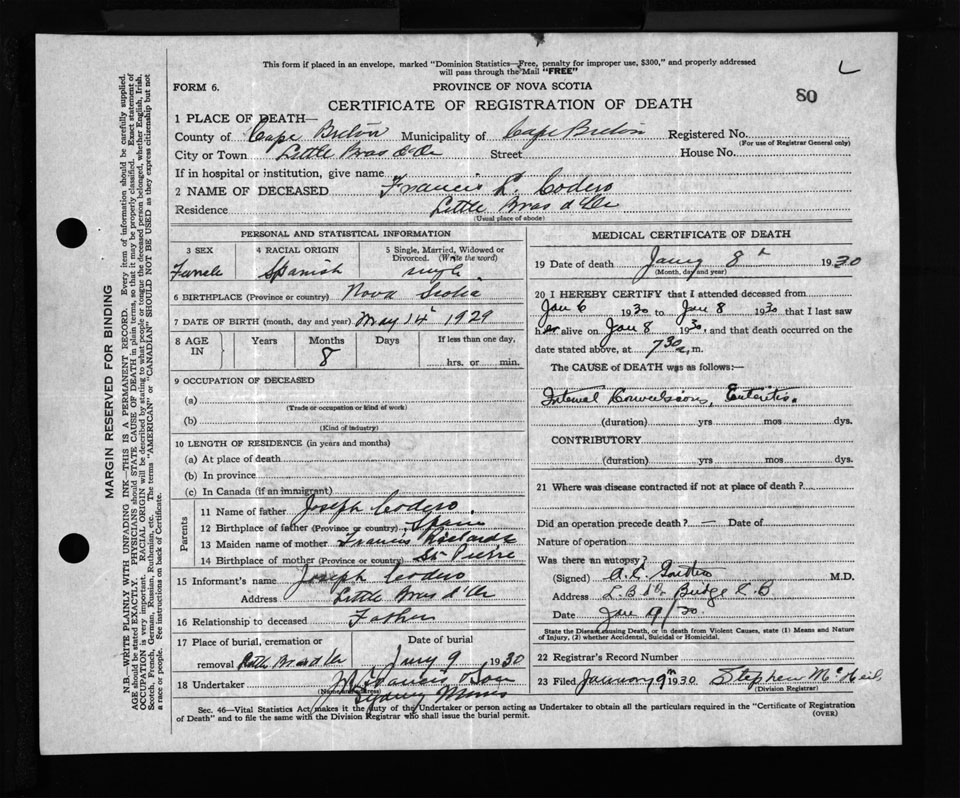 This form if placed in an envelope, marked "Dominion Statistics—Free, penalty for improper use, $300," and properly addressed
will pass through the Mail "FREE"
L
FORM 6.
PROVINCE OF NOVA SCOTIA
80
CERTIFICATE OF REGISTRATION OF DEATH
1 PLACE OF DEATH—
County of Cape Breton Municipality of Cape Breton Registered No.
(For use of Registrar General only)
City or Town Little Bras d'Or Street House No.
If in hospital or institution, give name
2 NAME OF DECEASED Francis L. Codero
Residence Little Bras d'Or
(Usual place of abode)
PERSONAL AND STATISTICAL INFORMATION
3 SEX 4 RACIAL ORIGIN 5 Single, Married, Widowed or
Divorced. (Write the word)
Female Spanish single
6 BIRTHPLACE (Province or country) Nova Scotia
7 DATE OF BIRTH (month, day and year) May 14th 1929
8 AGE IN Years Months Days If less than one day,
8 hrs. or min.
9 OCCUPATION OF DECEASED
(a)
(Trade or occupation or kind of work)
(b)
(Kind of industry)
10 LENGTH OF RESIDENCE (in years and months)
(a) At place of death
(b) In province
(c) In Canada (if an immigrant)
Parents
11 Name of father Joseph Codero
12 Birthplace of father (Province or country) Spain
13 Maiden name of mother Francis
14 Birthplace of mother (Province or country) St Pierre
15 Informant's name Joseph Codero
Address Little Bras d'Or
16 Relationship to deceased Father
17 Place of burial, cremation or Date of burial
removal Little Bras d'Or Jany 9 1930
18 Undertaker & Son
(Name and address)
Sydney Mines
MEDICAL CERTIFICATE OF DEATH
19 Date of death Jany 8th 1930
(Month, day and year)
20 I HEREBY CERTIFY that I attended deceased from
Jan 6 1930 to Jan 8 1930 that I last saw
her alive on Jan 8 1930, and that death occurred on
date stated above, at 7 30 a. m.
The CAUSE of DEATH was as follows:—
Internal Convulsions, Enteritis.
(duration) yrs mos dys.
CONTRIBUTORY
(duration) yrs mos dys.
21 Where was disease contracted if not at place of death?
Did an operation precede death? — Date of
Nature of operation
Was there an autopsy?
(Signed) M.D.
Address L. B d'Or Bridge C.B
Date Jan 9/30.
State the Disease causing Death, or in death from Violent Causes, state (1) Means and Nature
of Injury, (2) whether Accidental, Suicidal or Homicidal.
22 Registrar's Record Number
23 Filed January 9th 1930 Stephen McNeil
(Division Registrar)
Sec. 46—Vital Statistics Act makes it the duty of the Undertaker or person acting as Undertaker to obtain all the particulars required in the "Certificate of Registration
of Death" and to file the same with the Division Registrar who shall issue the burial permit.
(OVER)
MARGIN RESERVED FOR BINDING
N.B.—WRITE PLAINLY WITH UNFADING INK—THIS IS A PERMANENT RECORD. Every item of information should be carefully supplied.
AGE should be stated EXACTLY. PHYSICIANS should STATE CAUSE OF DEATH in plain terms, so that it may be properly classified. Exact statement of
OCCUPATION is very important. RACIAL ORIGIN will be described by stating to what people or tongue the deceased person belonged, whether English, Irish,
Scotch, French, German, Russian, Ruthenian, etc. The terms "AMERICAN" or "CANADIAN" SHOULD NOT BE USED as they express citizenship but not
a race or people. See instructions on back of Certificate.